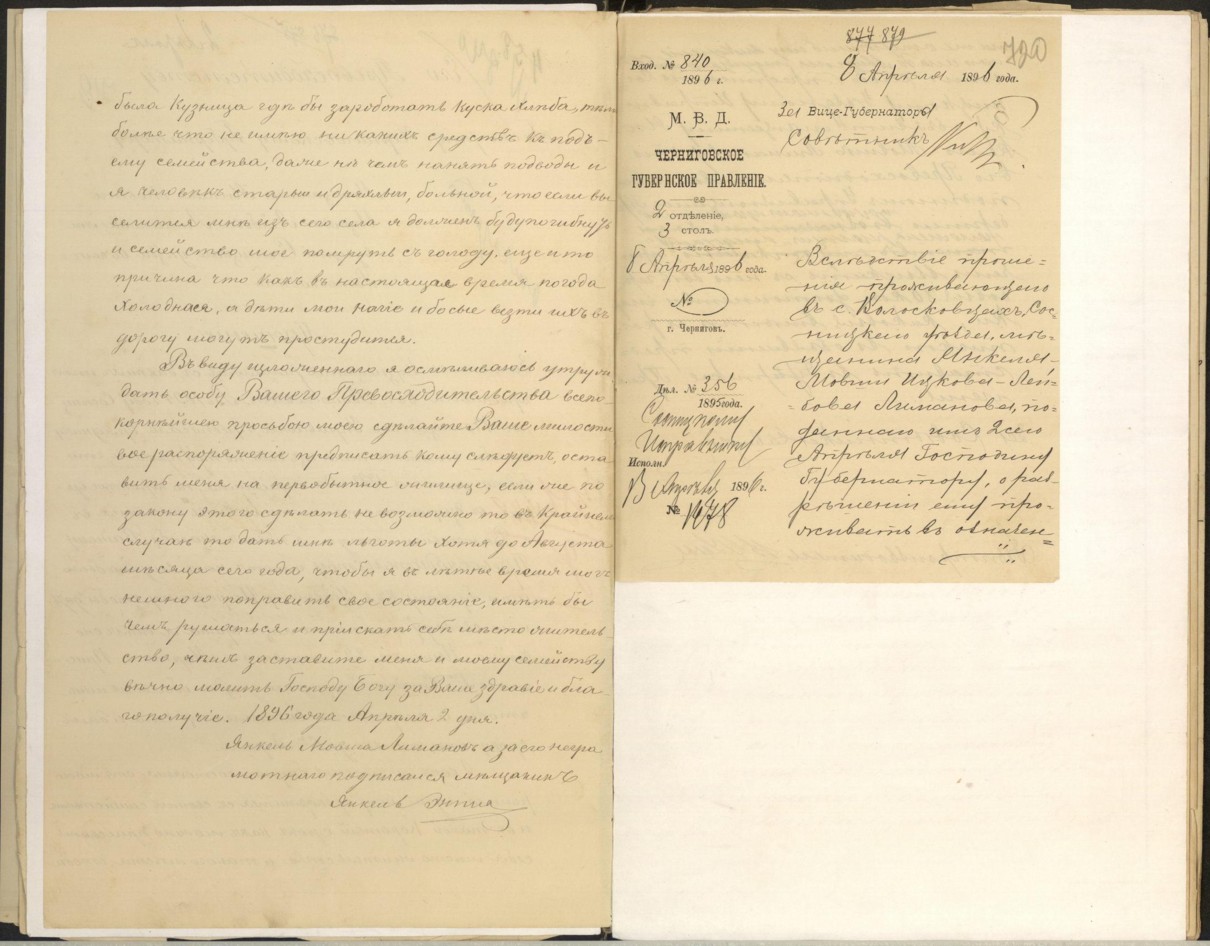 была Кузница где бы зароботать куска хлѣба, тѣмъ
болѣе что не имѣю ни какихъ средствъ къ подъ-
ему семейства, даже на чемъ нанять подводы и
я человѣкъ старый и дряхлый, больной, что если вы
селится мнѣ изъ сего села я долженъ буду погибнуть
и семейство мое помрутъ съ голоду, еще и то
причина что какъ въ настоящае время погода
холодная, а дѣти мои нагіе и босые везти ихъ въ
дорогу могутъ простудится.
Въ виду изложеннаго я осмѣливаюсь утруж
дать особу Вашего Превосходительства всепо-
корнѣйшею просьбою моею сдѣлайте Ваше милости
вое распоряженіе предписать кому слѣдуетъ, оста-
вить меня на первобытное жилище, если же по
закону этого сдѣлать не возможно то въ крайнем
случаѣ то дать мнѣ льготы хотя до Августа
мѣсяца сего года, чтобы я въ лѣтнее время могъ
немного поправить свое состояніе, имѣть бы
чемъ рушаться и пріискать себѣ мѣсто жительс
ство, чѣмъ заставите меня и моему семейству
вѣчно молить Господу Богу за Ваше здравіе и бла-
гополучіе. 1896 года Апрѣля 2 дня.
Янкель Мовша Лимановъ а за его негра
мотнаго подписался мѣщанинъ
Янкель
877 879
720
Вход. № 840
1896 г.
8 Апрѣля 1896 года.
М. В. Д.
За Вице-Губернатора
Совѣтникъ
ЧЕРНИГОВСКОЕ
ГУБЕРНСКОЕ ПРАВЛЕНІЕ.
2 отдѣленіе,
3 столъ.
8 Апрѣля 1896 года.
№
г. Черниговъ.
Дѣл. № 356
1895 года.
Сосницкому
Исправнику
Исполн.
8 Апрѣля 1896 г.
№ 1478
Вслѣдствіе проше-
нія проживающаго
въ с. Волосковцахъ, Сос-
ницкаго уѣзда, мѣ-
щанина Янкеля-
Мовши Ицкова-Лей-
бова Лиманова, по-
даннаго имъ 2 сего
Апрѣля Господину
Губернатору, о раз-
рѣшеніи ему про-
живать въ означен-